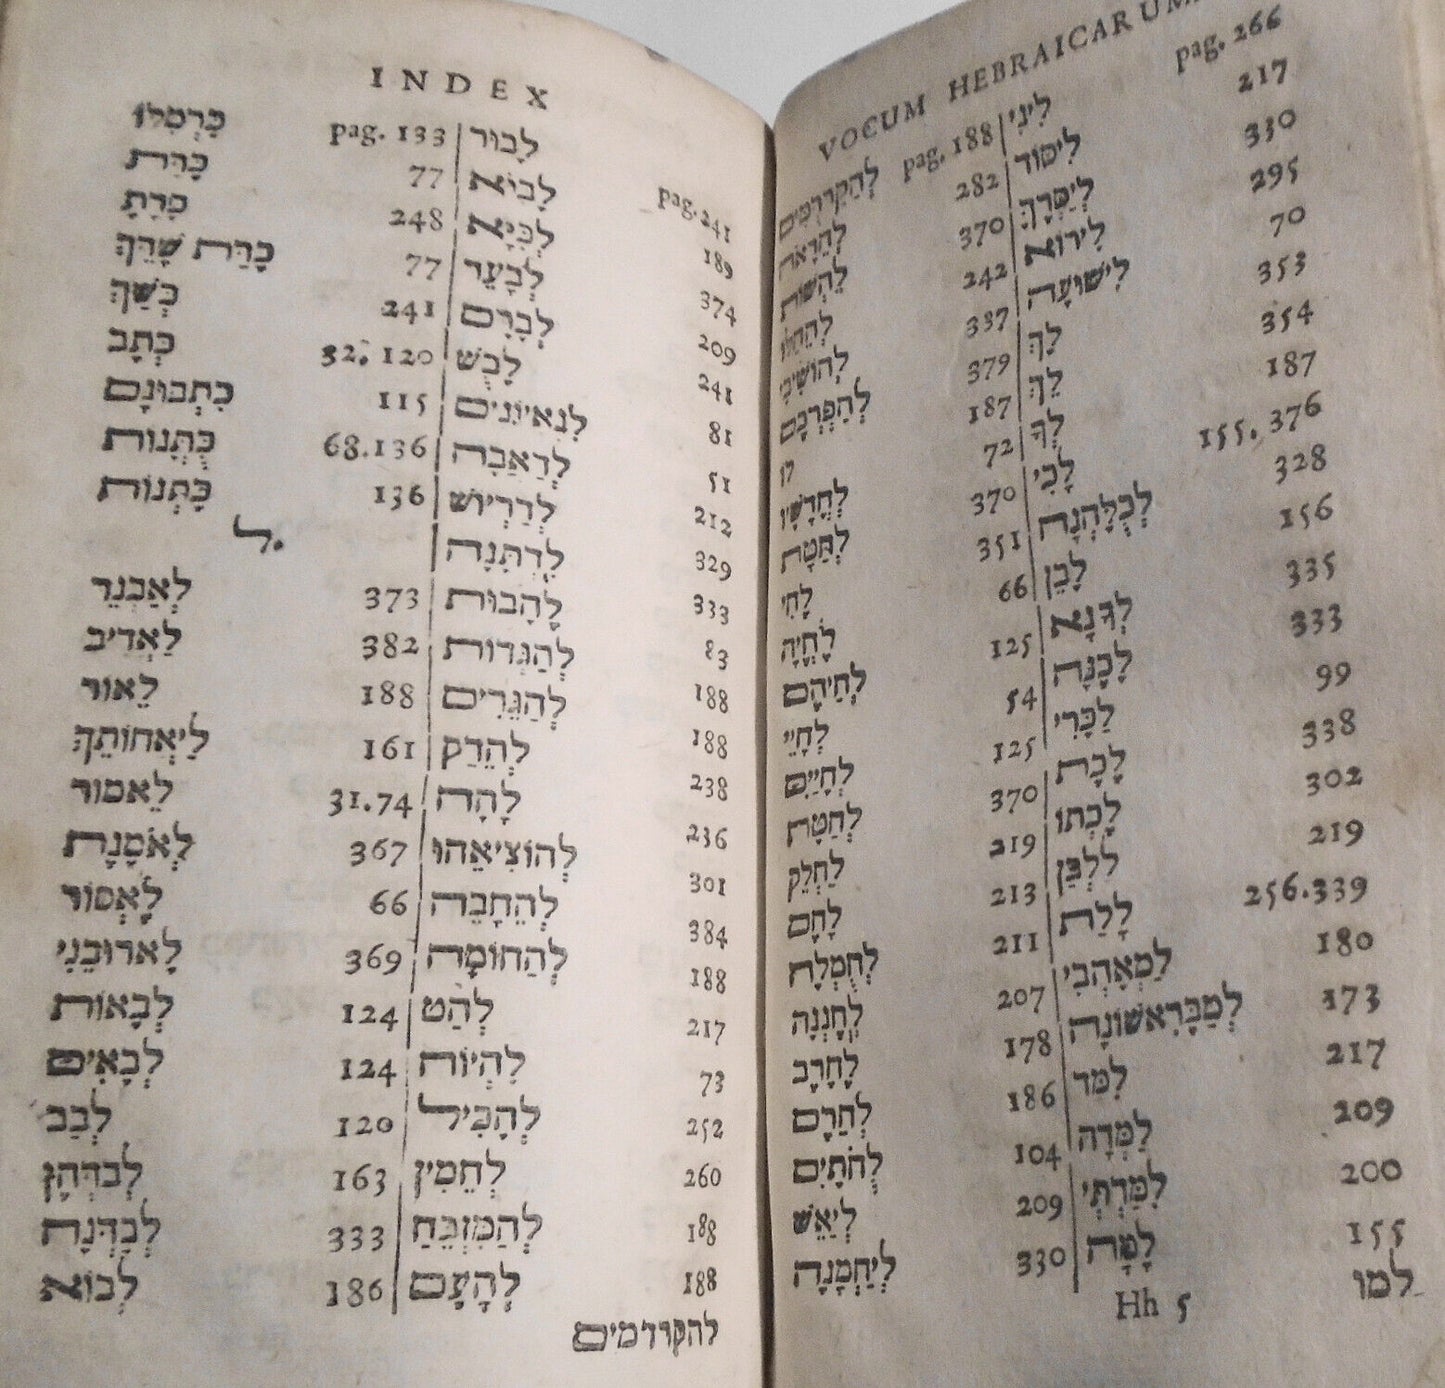 INDEX
כָּרְסְלוּ pag. 133
כָּרַת 77
כָרָתָ 248
כָּרַת שָׁרֵּךְ 77
כְּשַׁךְ 241
כְּתָב 32. 120
כִּתְבוּנָם 115
כֻּתֳּנוֹת 68.136
כָּתְנוֹת 136
ל.
לְאַבְנֵר 373
לַאְדִיב 382
לֵאוֹר 188
לַיאְחוֹתֵךְ 161
לֵאמוֹר 31.74
לְאֹסְנָת 367
לֶאְסוֹר 66
לָארוּבֵנִי 369
לְבָאוֹת 124
לְבָאִים 124
לְבַב 120
לְבֵדְהֶן 163
לְבַדְּנָה 333
לְבוֹא 186
לָבוּר pag. 241
לָבִיא 189
לְבִּיָא 374
לְבָעֵר 209
לְבָרָם 241
לָבְשׁ 81
לִגְאיוֹנִים 51
לְדַאֲבָה 212
לְדַרְיוֹשׁ 329
לְדִתָּנָה 333
לֶהָבוֹת 83
לְהַגְּדוֹת 188
לְהַגֵּרִים 188
לְהֵדַק 238
לָהָה 236
לְהוֹצִיאֵהוּ 301
לְהֵחָבֵה 384
לְהַחוֹמָה 188
לְהַט 217
לִהְיוֹת 73
לְהָכִּיל 252
לְחֵמִין 260
לְהַמִּזְבֵּחַ 188
לְהָעָם 188
להקודמים
VOCUM HEBRAICARUM
לְהַקַּדְרְמִים pag. 188
לְהֵרָאֹה 282
לְהֻשּׁוֹת 370
לְהֵחָלּוּ 242
לְהוֹשִׁיבִי 337
לְהַפְּרְכֶּם 379
לו 187
לְחֳרָשָׁיו 72
לְחַטָּת 370
לָחִי 351
לָחֳיָה 66
לְחַיהֶם 125
לְחָיֵי 54
לְחַיִּים 125
לְחַטָּת 370
לַחְלֵק 219
לָחֶם 213
לְחֻמְלַת 211
לְחֶנְנָה 207
לֶחָרֵב 178
לְחֵרָם 186
לְחֹתָיִם 104
לְיַאֵשׁ 209
לְיַחְמֵנָה 330
לִינִי pag. 266
לִיסוֹד 217
לְיִפְּרָךָ 330
לִירוֹא 295
לִישׁוּעָה 70
לָךְ 353
לֵךְ 354
לְךָ 187
לָכִי 155. 376
לְכֻלָּהְנָה 328
לָכֵן 156
לְךָנָא 335
לָכֵנָה 333
לַכָּרִי 99
לָכָת 338
לָכְתוֹ 302
לְלַבֵּן 219
לָלַת 256.339
לַמְאָהֲבִי 180
לְמַבָּרִאשׁוֹנָה 173
לִמֹּד 217
לְמִּדָּה 209
לְמַרְתִּי 200
לָמָּה 155
Hh 5
למו